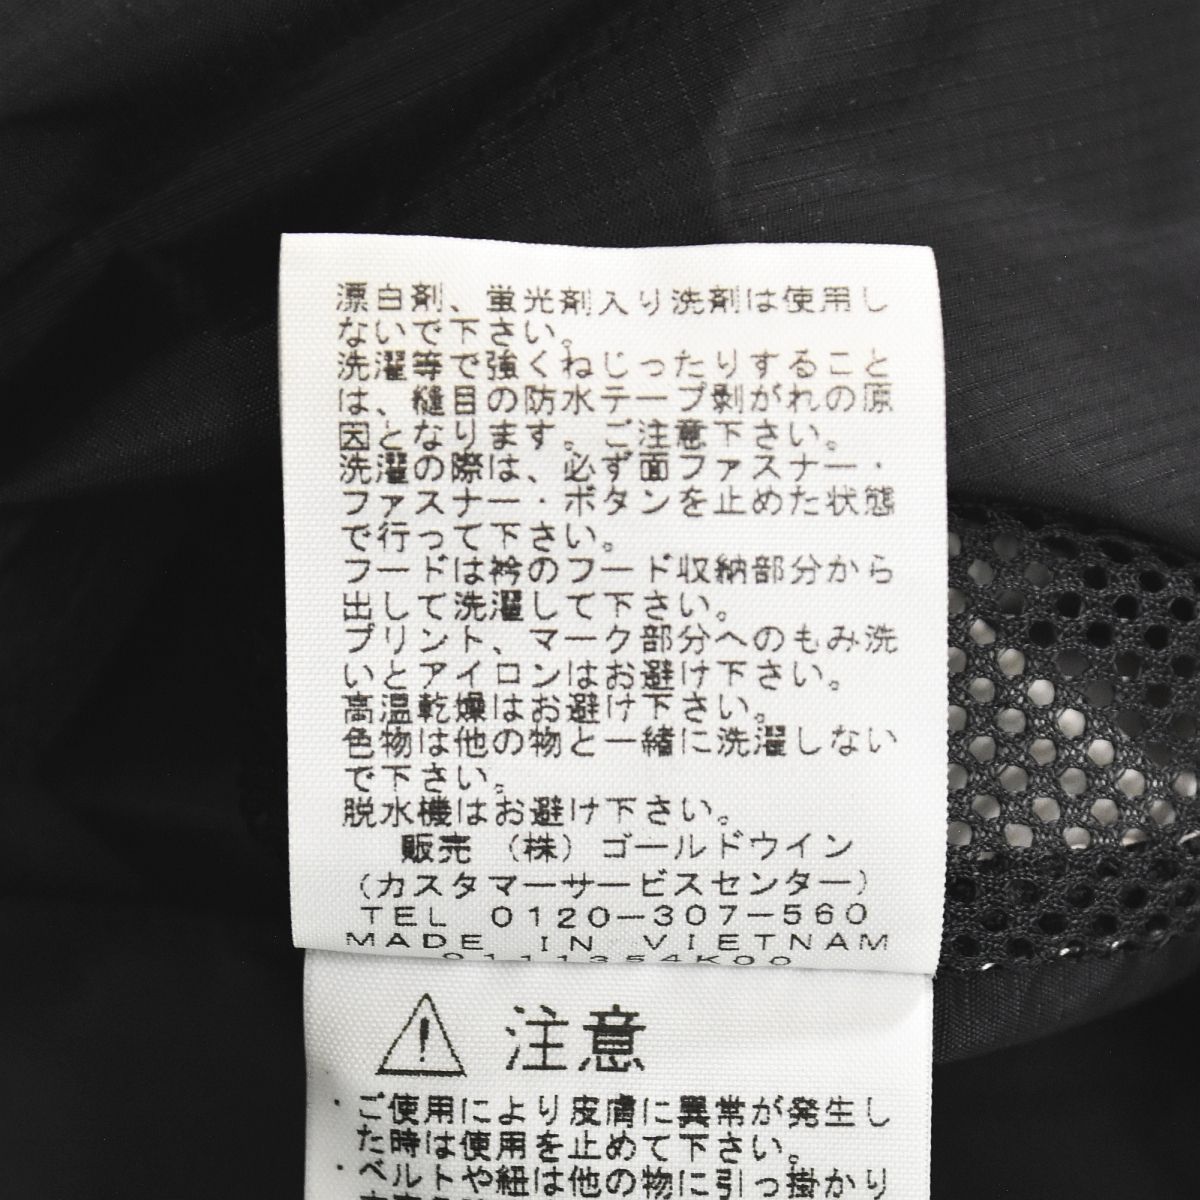 漂白剤、蛍光剤入り洗剤は使用し
ないで下さい。
洗濯等で強くねじったりすること
は、縫目の防水テープ剥がれの原
因となります。ご注意下さい。
洗濯の際は、必ず面ファスナー・
ファスナー・ボタンを止めた状態
で行って下さい。
フードは衿のフード収納部分から
出して洗濯して下さい。
プリント、マーク部分へのもみ洗
いとアイロンはお避け下さい。
高温乾燥はお避け下さい。
色物は他の物と一緒に洗濯しない
で下さい。
脱水機はお避け下さい。
販売 (株) ゴールドウイン
(カスタマーサービスセンター)
TEL 0120-307-560
MADE IN VIETNAM
0111354K00
注意
・ご使用により皮膚に異常が発生し
た時は使用を止めて下さい。
・ベルトや紐は他の物に引っ掛かり